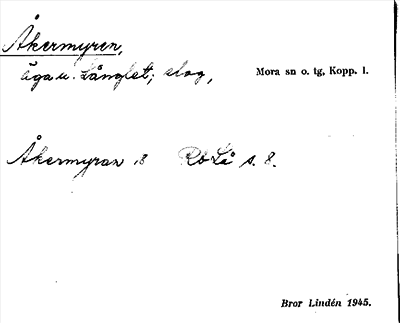 Åkermyren,
äga u. Långlet; slog, Mora sn o. tg, Kopp. l.
Åkermyran 18 Rb Lå s. 8.
Bror Lindén 1945.